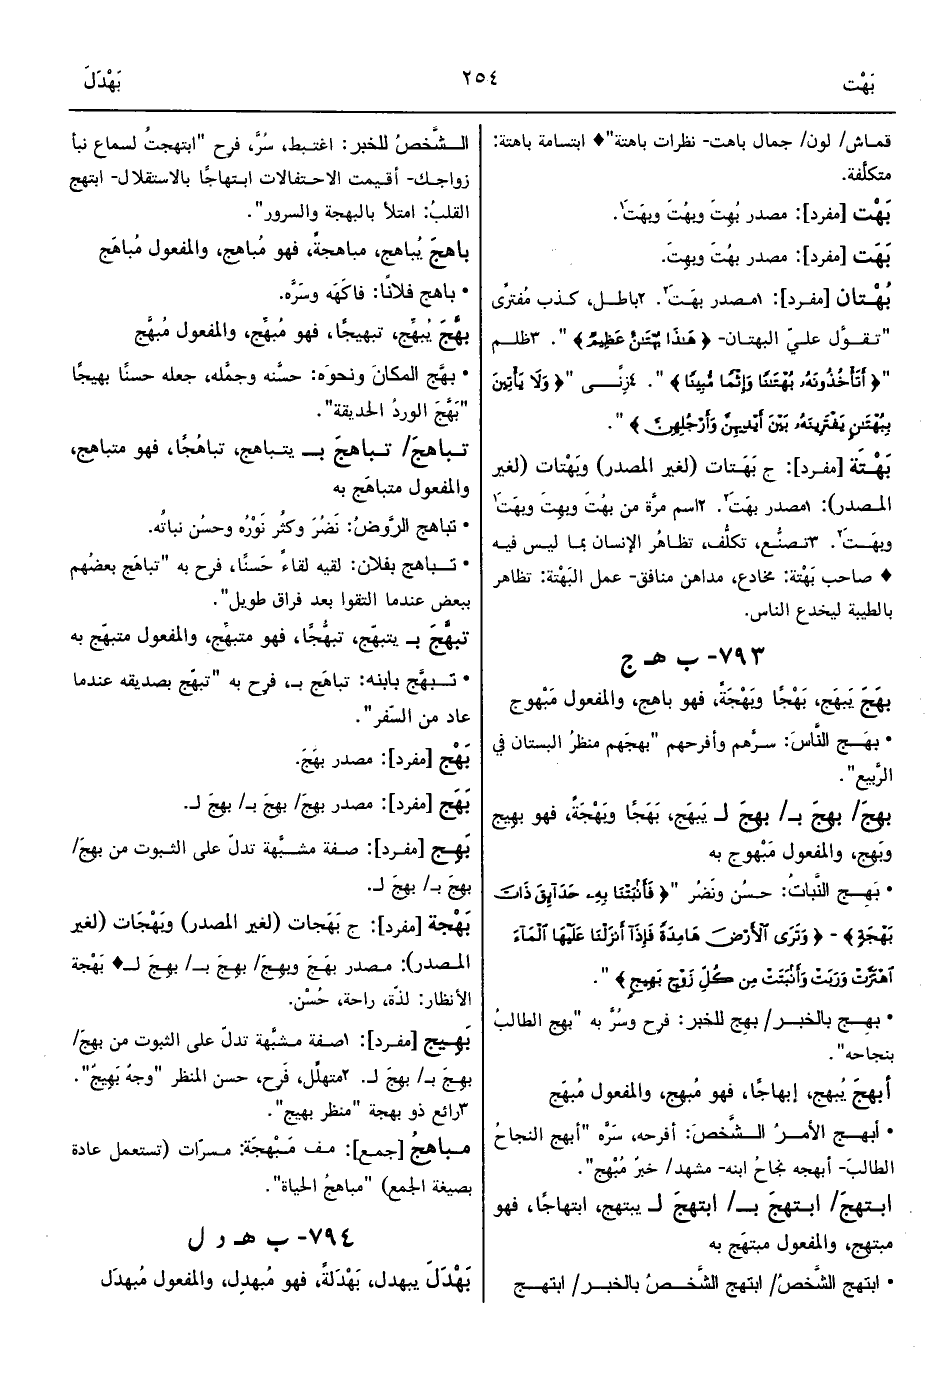 بَهْت
٢٥٤
بَهْدَلَ
قماش/ لون/ جمال باهت- نظرات باهتة"♦ ابتسامة باهتة:
متكلَّفة.
بَهْت [مفرد]: مصدر بُهِتَ وبهُتَ وبهَتَ١.
بَهَت [مفرد]: مصدر بهُتَ وبهِتَ.
بُهْتان [مفرد]: ١مصدر بهَتَ٢. ٢باطل، كذب مُفترًى
"تقوَّل عليّ البهتان- ﴿هَٰذَا بُهْتَٰنٌ عَظِيمٌ﴾". ٣ظلم
"﴿أَتَأْخُذُونَهُۥ بُهْتَٰنًا وَإِثْمًا مُّبِينًا﴾". ٤زِنًى "﴿وَلَا يَأْتِينَ
بِبُهْتَٰنٍ يَفْتَرِينَهُۥ بَيْنَ أَيْدِيهِنَّ وَأَرْجُلِهِنَّ﴾".
بَهْتَة [مفرد]: ج بَهَتات (لغير المصدر) وبَهْتات (لغير
المصدر): ١مصدر بهَتَ٢. ٢اسم مرَّة من بهُتَ وبهِتَ وبهَتَ١
وبهَتَ٢. ٣تصنُّع، تكلُّف، تظاهُر الإنسان بما ليس فيه
♦ صاحب بَهْتة: مخادع، مداهن منافق- عمل البَهْتة: تظاهر
بالطيبة ليخدع الناس.
٧٩٣- ب هـ ج
بهَجَ يَبهَج، بَهْجًا وبَهْجَةً، فهو باهج، والمفعول مَبْهوج
• بهَج النَّاسَ: سرَّهم وأفرحهم "بهجَهم منظرُ البستان في
الرَّبيع".
بهِجَ/ بهِجَ بـ/ بهِجَ لـ يَبهَج، بَهَجًا وبَهْجَةً، فهو بهيج
وبَهِج، والمفعول مَبْهوج به
• بَهِج النَّباتُ: حسُن ونَضُر "﴿فَأَنۢبَتْنَا بِهِۦ حَدَآئِقَ ذَاتَ
بَهْجَةٍ﴾- ﴿وَتَرَى ٱلْأَرْضَ هَامِدَةً فَإِذَآ أَنزَلْنَا عَلَيْهَا ٱلْمَآءَ
ٱهْتَزَّتْ وَرَبَتْ وَأَنۢبَتَتْ مِن كُلِّ زَوْجٍۭ بَهِيجٍ﴾".
• بهِج بالخبر/ بهج للخبر: فرح وسُرَّ به "بهج الطالبُ
بنجاحه".
أبهجَ يُبهج، إبهاجًا، فهو مُبهِج، والمفعول مُبهَج
• أبهج الأمرُ الشَّخصَ: أفرحه، سَرَّه "أبهج النجاحُ
الطالبَ- أبهجه نجاحُ ابنه- مشهد/ خبرٌ مُبْهِج".
ابتهجَ/ ابتهجَ بـ/ ابتهجَ لـ يبتهج، ابتهاجًا، فهو
مبتهِج، والمفعول مبتهَج به
• ابتهج الشَّخصُ/ ابتهج الشَّخصُ بالخبر/ ابتهج
الشَّخصُ للخبر: اغتبط، سُرَّ، فرح "ابتهجتُ لسماع نبأ
زواجك- أقيمت الاحتفالات ابتهاجًا بالاستقلال- ابتهج
القلبُ: امتلأ بالبهجة والسرور".
باهجَ يُباهج، مباهجةً، فهو مُباهِج، والمفعول مُباهَج
• باهج فلانًا: فاكَهَه وسَرَّه.
بهَّجَ يُبهِّج، تبهيجًا، فهو مُبهِّج، والمفعول مُبهَّج
• بهَّج المكانَ ونحوَه: حسَّنه وجمَّله، جعله حسنًا بهيجًا
"بَهَّجَ الوردُ الحديقة".
تباهجَ/ تباهجَ بـ يتباهج، تباهُجًا، فهو متباهِج،
والمفعول متباهَج به
• تباهج الرَّوضُ: نَضُرَ وكثُر نَوْرُه وحسُن نباتُه.
• تباهج بفلان: لقيه لقاءً حَسنًا، فرح به "تباهَج بعضُهم
ببعض عندما التقوا بعد فراق طويل".
تبهَّجَ بـ يتبهّج، تبهُّجًا، فهو متبهِّج، والمفعول متبهَّج به
• تبهَّج بابنه: تباهَج بـ، فرح به "تبهَّج بصديقه عندما
عاد من السَّفر".
بَهْج [مفرد]: مصدر بهَجَ.
بَهَج [مفرد]: مصدر بهِجَ/ بهِجَ بـ/ بهِجَ لـ.
بَهِج [مفرد]: صفة مشبَّهة تدلّ على الثبوت من بهِجَ/
بهِجَ بـ/ بهِجَ لـ.
بَهْجة [مفرد]: ج بَهَجات (لغير المصدر) وبَهْجات (لغير
المصدر): مصدر بهَجَ وبهِجَ/ بهِجَ بـ/ بهِجَ لـ♦ بَهْجة
الأنظار: لذّة، راحة، حُسْن.
بَهيج [مفرد]: ١صفة مشبَّهة تدلّ على الثبوت من بهِجَ/
بهِجَ بـ/ بهِجَ لـ. ٢متهلّل، فَرِح، حسن المنظر "وجهٌ بَهِيجٌ".
٣رائع ذو بهجة "منظر بهيج".
مباهجُ [جمع]: مف مَبْهَجة: مسرّات (تستعمل عادة
بصيغة الجمع) "مباهجُ الحياة".
٧٩٤- ب هـ د ل
بَهْدَلَ يبهدل، بَهْدَلةً، فهو مُبهدِل، والمفعول مُبهدَل